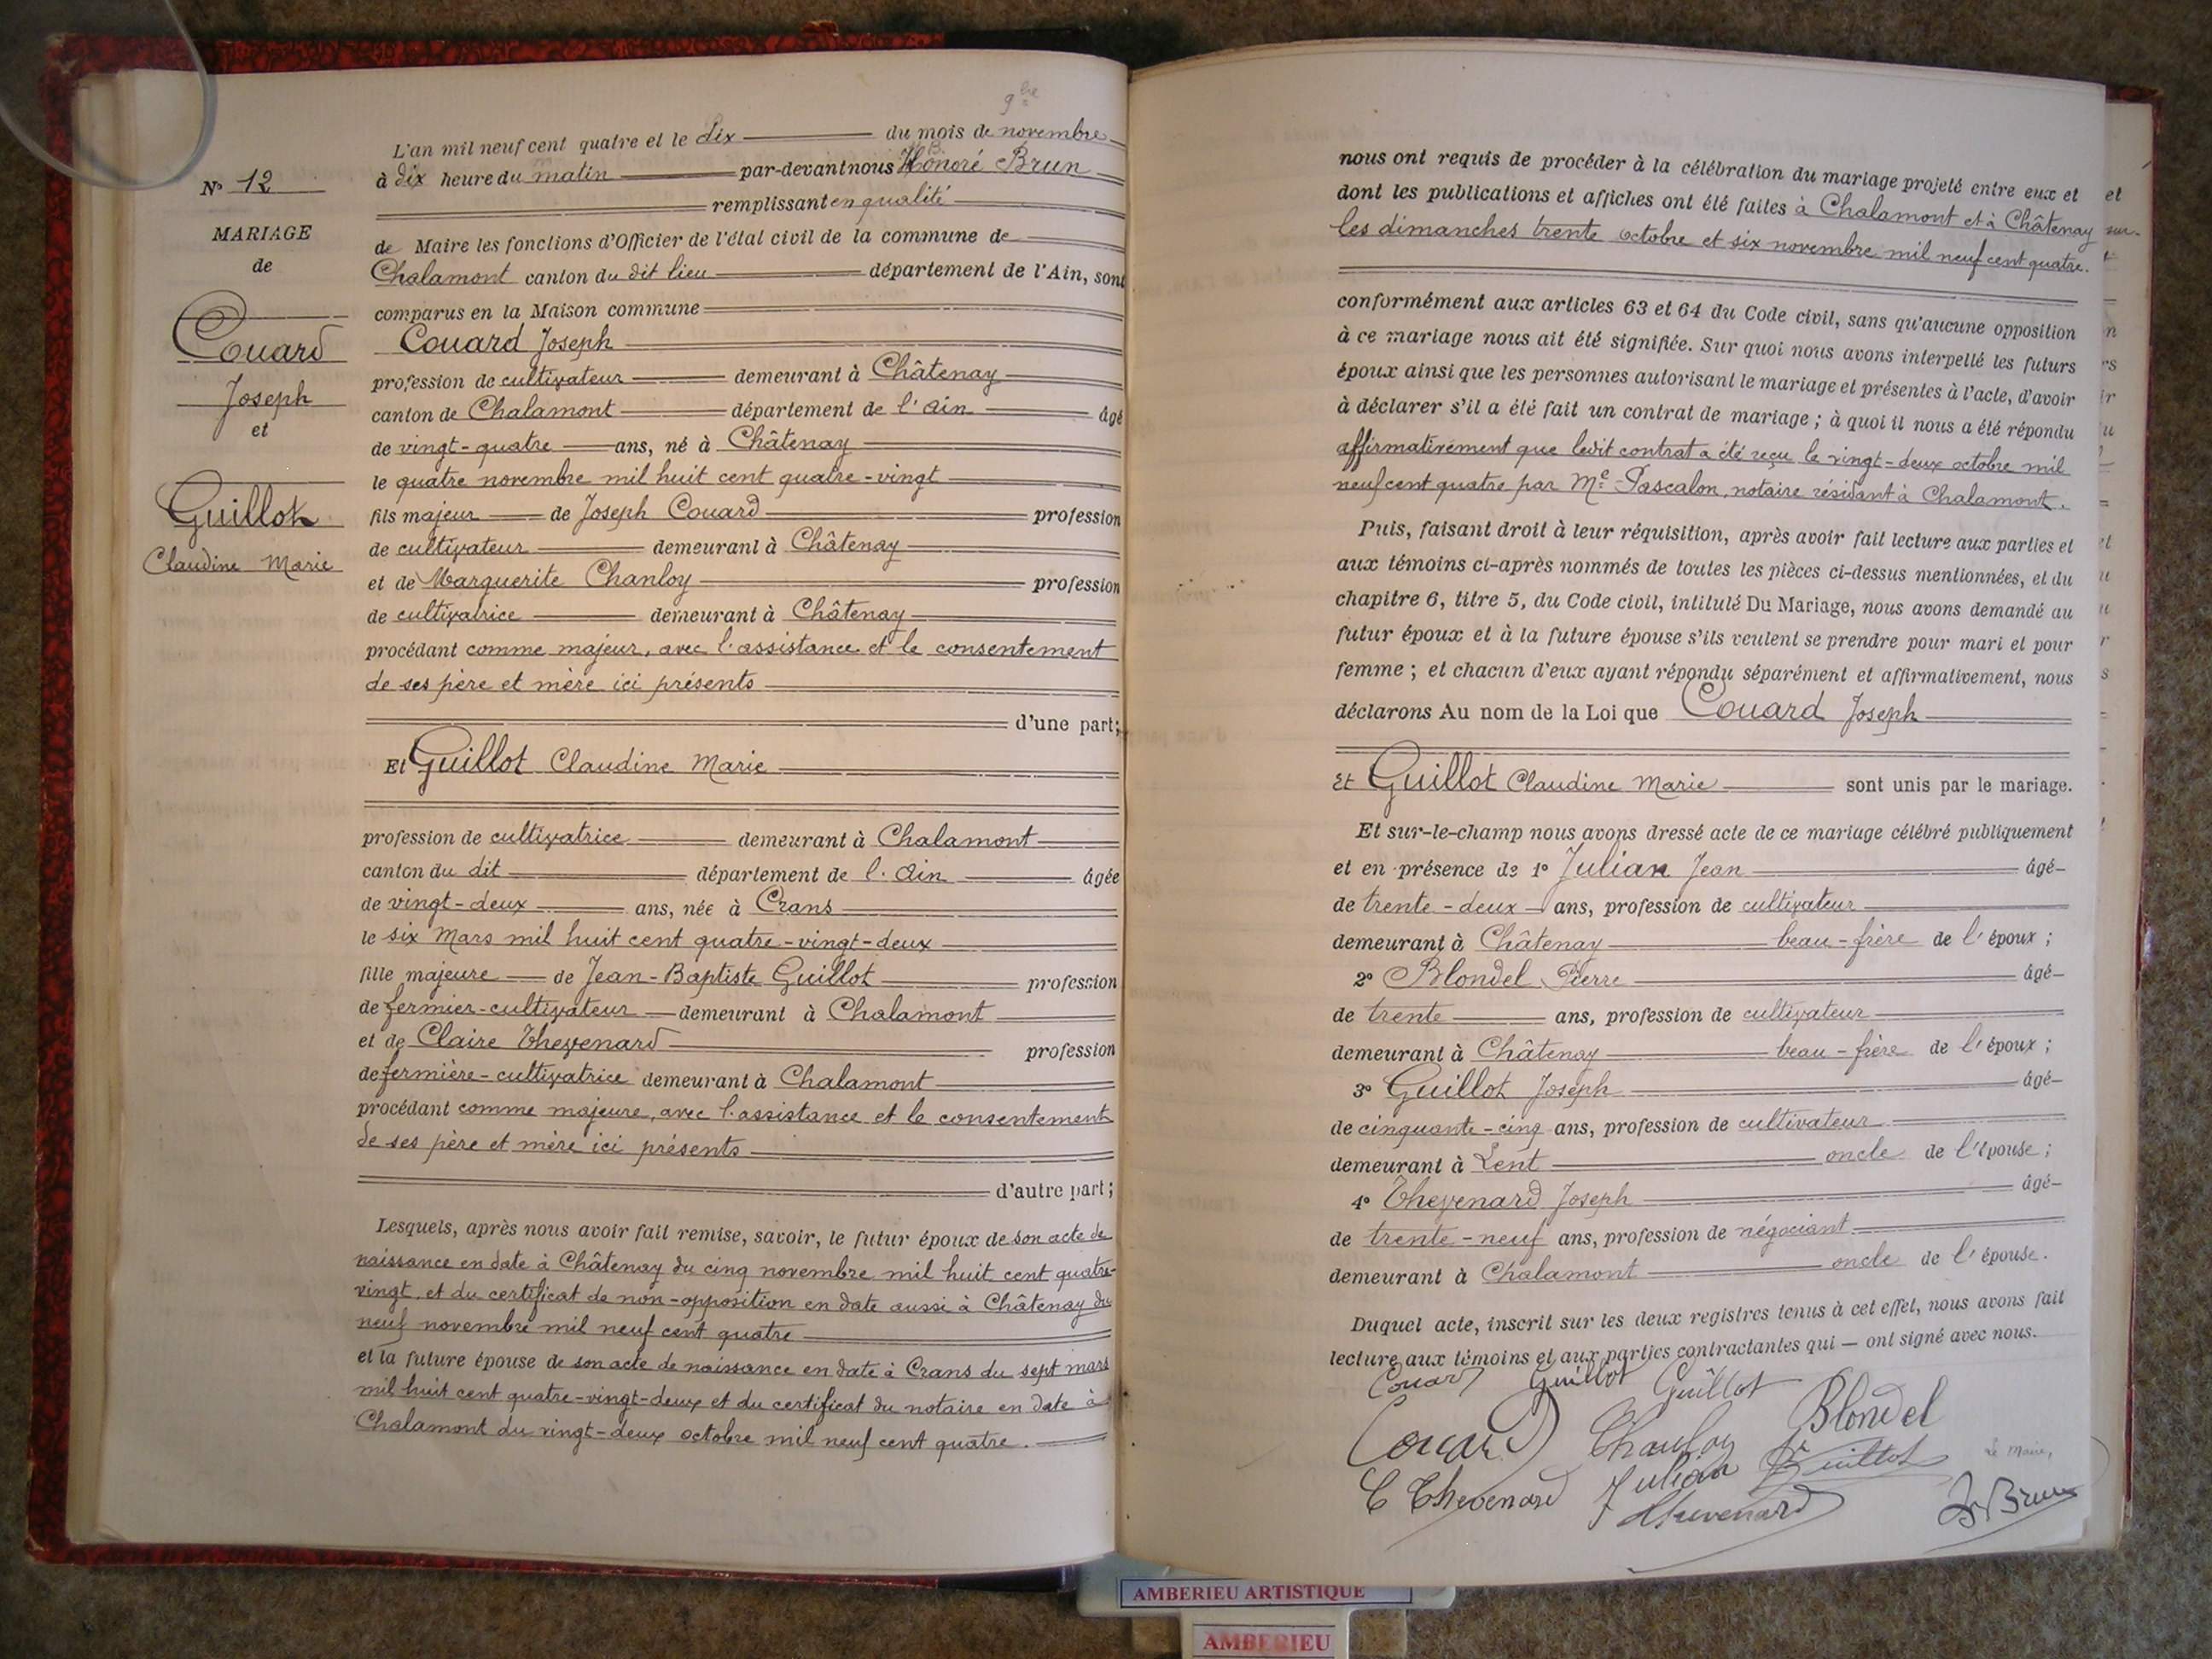 9bre
L'an mil neuf cent quatre et le dix du mois de novembre
à dix heure du matin par-devant nous Honoré Brun
remplissant en qualité
de Maire les fonctions d'Officier de l'état civil de la commune de
Chalamont canton du dit lieu département de l'Ain, sont
comparus en la Maison commune
Couard Joseph
profession de cultivateur demeurant à Châtenay
canton de Chalamont département de l'Ain âgé
de vingt-quatre ans, né à Châtenay
le quatre novembre mil huit cent quatre-vingt
fils majeur de Joseph Couard profession
de cultivateur demeurant à Châtenay
et de Marguerite Chanloy profession
de cultivatrice demeurant à Châtenay
procédant comme majeur, avec l'assistance et le consentement
de ses père et mère ici présents
d'une part;
Et Guillot Claudine Marie
profession de cultivatrice demeurant à Chalamont
canton du dit département de l'Ain âgée
de vingt-deux ans, née à Crans
le six Mars mil huit cent quatre-vingt-deux
fille majeure de Jean-Baptiste Guillot profession
de fermier-cultivateur demeurant à Chalamont
et de Claire Thevenard profession
de fermière-cultivatrice demeurant à Chalamont
procédant comme majeure, avec l'assistance et le consentement
de ses père et mère ici présents
d'autre part;
Lesquels, après nous avoir fait remise, savoir, le futur époux de son acte de
naissance en date à Châtenay du cinq novembre mil huit cent quatre-
vingt, et du certificat de non-opposition en date aussi à Châtenay du
neuf novembre mil neuf cent quatre
et la future épouse de son acte de naissance en date à Crans du sept mars
mil huit cent quatre-vingt-deux et du certificat du notaire en date à
Chalamont du vingt-deux octobre mil neuf cent quatre.
No 12
MARIAGE
de
Couard
Joseph
et
Guillot
Claudine Marie
nous ont requis de procéder à la célébration du mariage projeté entre eux et
dont les publications et affiches ont été faites à Chalamont et à Châtenay
les dimanches trente octobre et six novembre mil neuf cent quatre.
conformément aux articles 63 et 64 du Code civil, sans qu'aucune opposition
à ce mariage nous ait été signifiée. Sur quoi nous avons interpellé les futurs
époux ainsi que les personnes autorisant le mariage et présentes à l'acte, d'avoir
à déclarer s'il a été fait un contrat de mariage; à quoi il nous a été répondu
affirmativement que ledit contrat a été reçu le vingt-deux octobre mil
neuf cent quatre par Me Pascalon, notaire résidant à Chalamont.
Puis, faisant droit à leur réquisition, après avoir fait lecture aux parties et
aux témoins ci-après nommés de toutes les pièces ci-dessus mentionnées, et du
chapitre 6, titre 5, du Code civil, intitulé Du Mariage, nous avons demandé au
futur époux et à la future épouse s'ils veulent se prendre pour mari et pour
femme; et chacun d'eux ayant répondu séparément et affirmativement, nous
déclarons Au nom de la Loi que Couard Joseph
Et Guillot Claudine Marie sont unis par le mariage.
Et sur-le-champ nous avons dressé acte de ce mariage célébré publiquement
et en présence de 1o Julian Jean âgé
de trente-deux ans, profession de cultivateur
demeurant à Châtenay beau-frère de l'époux;
2o Blondel Pierre âgé
de trente ans, profession de cultivateur
demeurant à Châtenay beau-frère de l'époux;
3o Guillot Joseph âgé
de cinquante-cinq ans, profession de cultivateur
demeurant à Lent oncle de l'épouse;
4o Thevenard Joseph âgé
de trente-neuf ans, profession de négociant
demeurant à Chalamont oncle de l'épouse.
Duquel acte, inscrit sur les deux registres tenus à cet effet, nous avons fait
lecture aux témoins et aux parties contractantes qui — ont signé avec nous.
Couard Guillot Guillot
Couard Chanloy Blondel
C Thevenard Julian Guillot Le Maire,
Thevenard Brun
AMBERIEU ARTISTIQUE
AMBERIEU